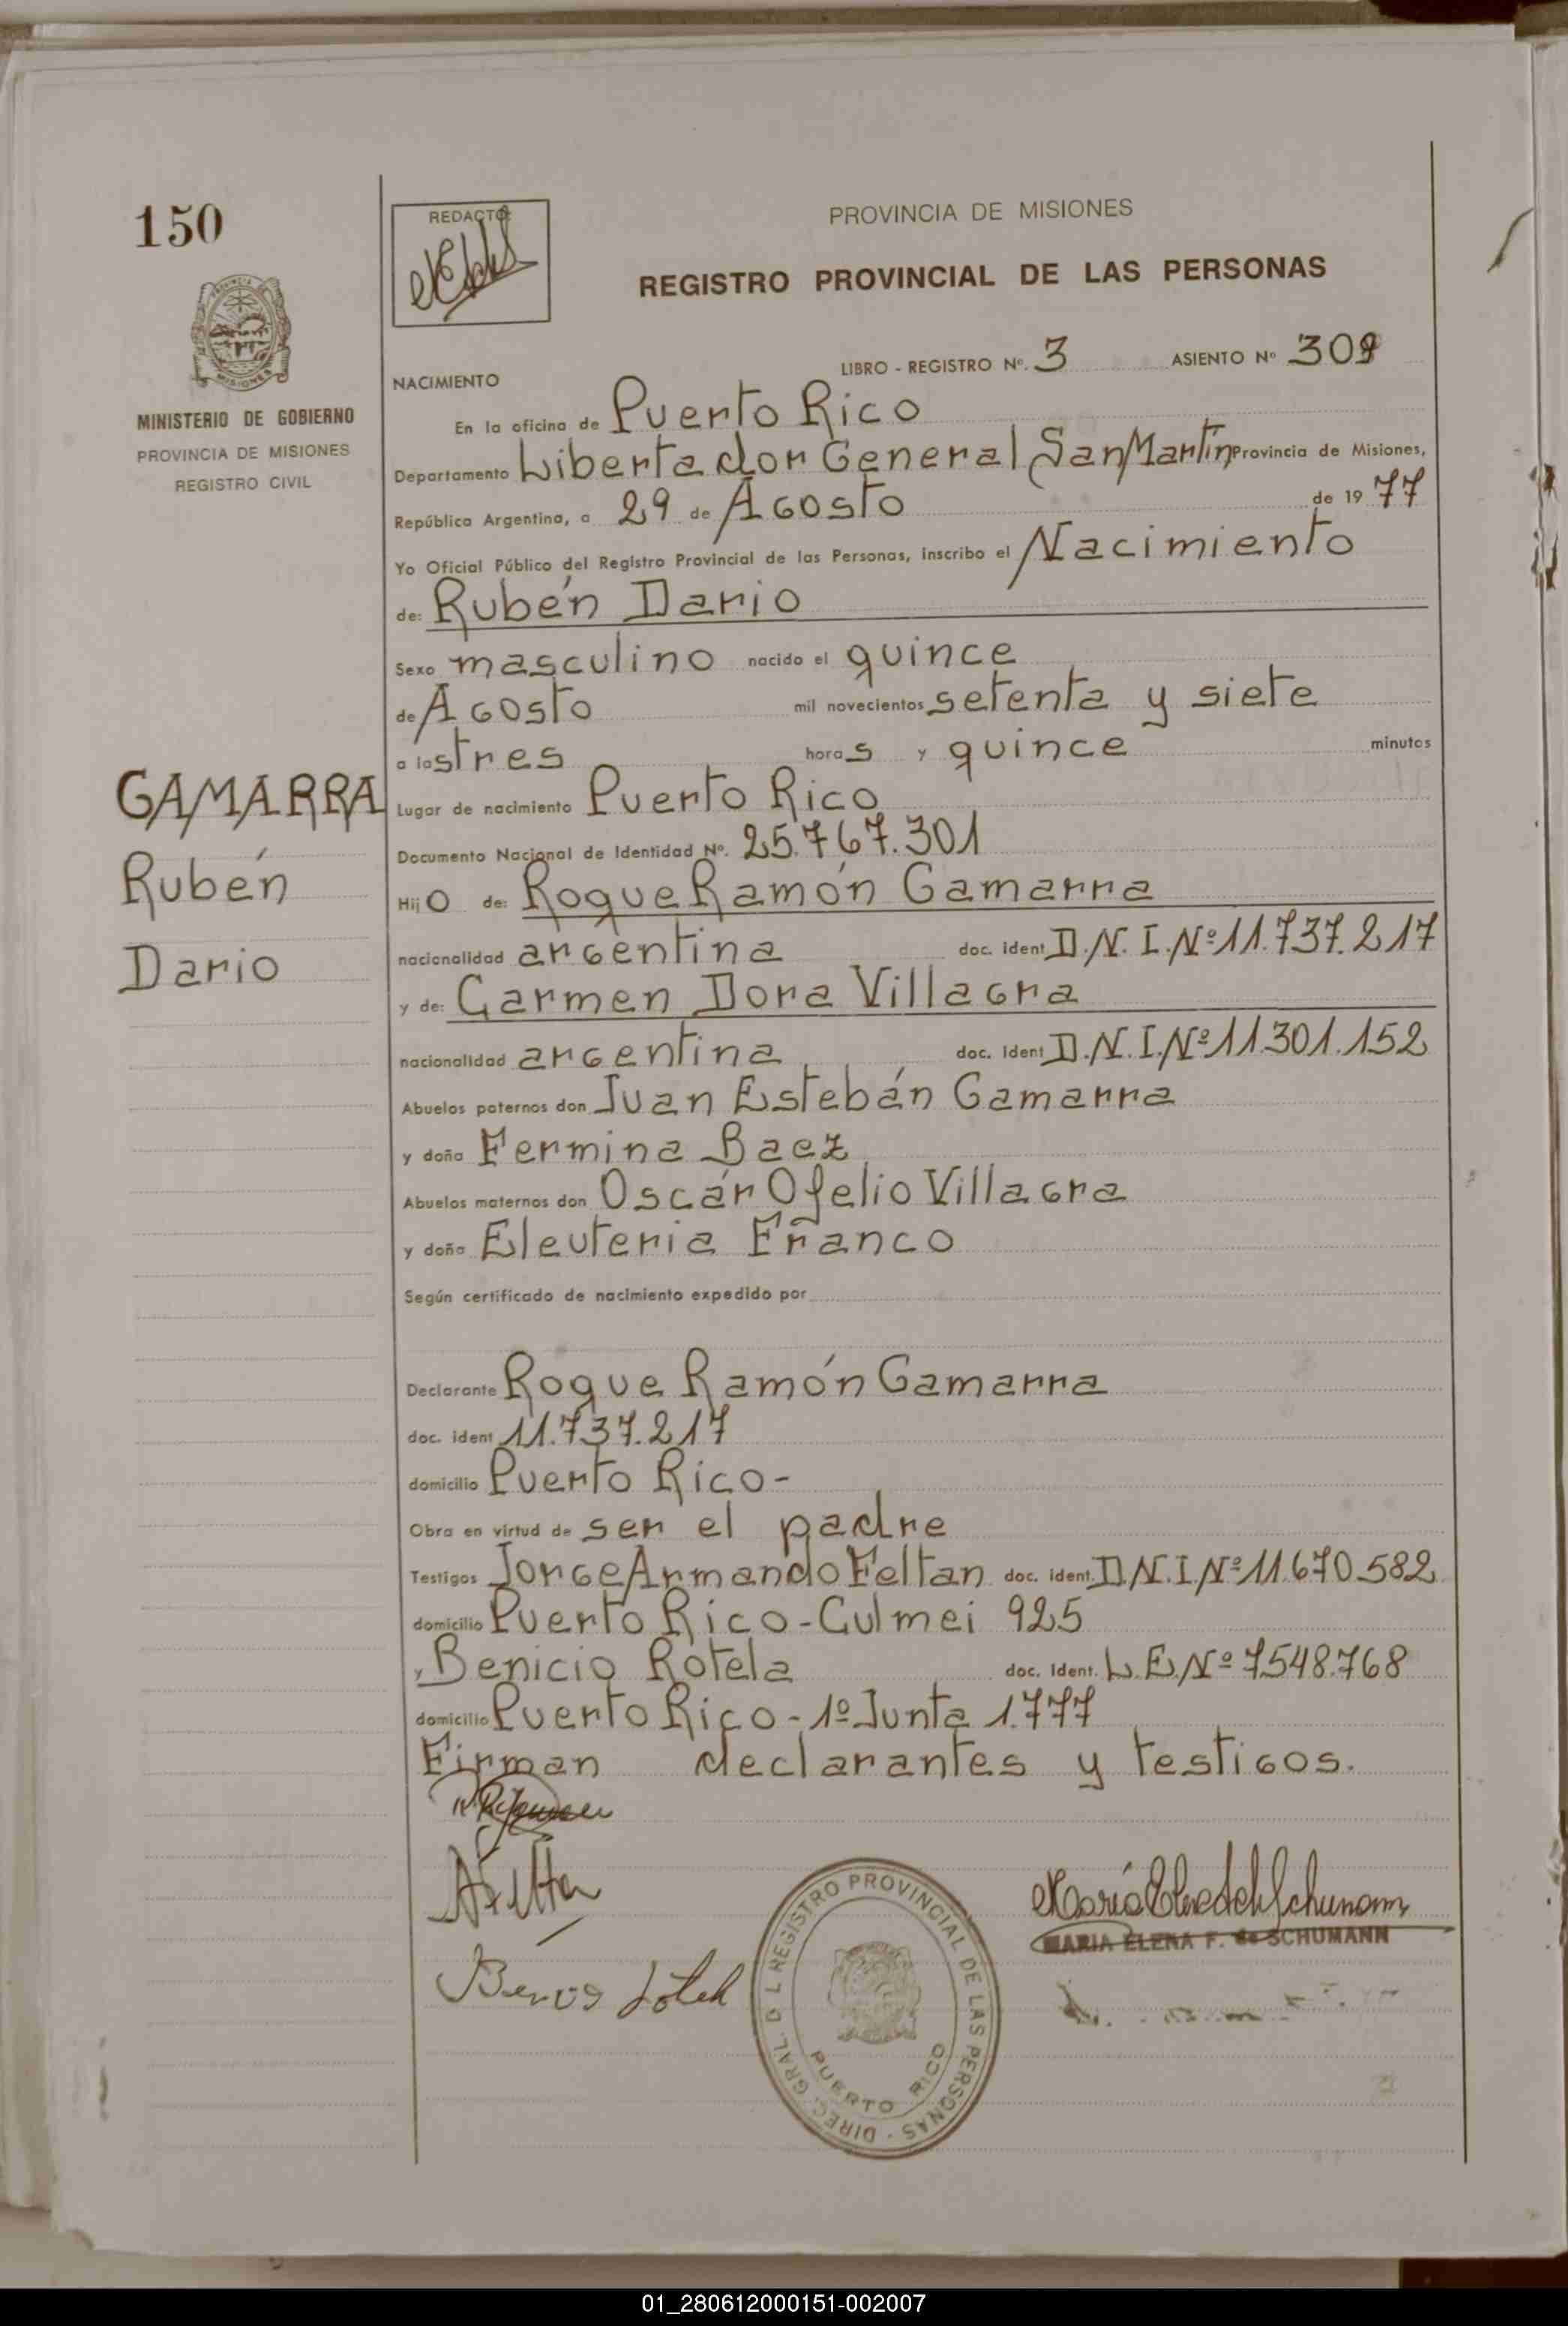 150
REDACTO:
PROVINCIA DE MISIONES
REGISTRO PROVINCIAL DE LAS PERSONAS
PROVINCIA DE MISIONES
MINISTERIO DE GOBIERNO
PROVINCIA DE MISIONES
REGISTRO CIVIL
LIBRO - REGISTRO Nº. 3 ASIENTO Nº 309
NACIMIENTO
En la oficina de Puerto Rico
Departamento Libertador General San Martín Provincia de Misiones,
República Argentina, a 29 de Agosto de 1977
Yo Oficial Público del Registro Provincial de las Personas, inscribo el Nacimiento
de: Rubén Dario
Sexo masculino nacido el quince
de Agosto mil novecientos setenta y siete
a las tres horas y quince minutos
GAMARRA
Rubén
Dario
Lugar de nacimiento Puerto Rico
Documento Nacional de Identidad Nº. 25.767.301
Hijo de: Roque Ramón Gamarra
nacionalidad argentina doc. ident D.N.I.Nº11.737.217
y de: Carmen Dora Villagra
nacionalidad argentina doc. ident D.N.I.Nº11.301.152
Abuelos paternos don Juan Estebán Gamarra
y doña Fermina Baez
Abuelos maternos don Oscár Ofelio Villagra
y doña Eleuteria Franco
Según certificado de nacimiento expedido por
Declarante Roque Ramón Gamarra
doc. ident 11.737.217
domicilio Puerto Rico-
Obra en virtud de ser el padre
Testigos Jorge Armando Feltan doc. ident. D.N.I.Nº11.670.582
domicilio Puerto Rico-Culmei 925
y Benicio Rotela doc. ident. L.E.Nº7.548.768
domicilio Puerto Rico-1º Junta 1.777
Firman declarantes y testigos.
MARIA ELENA F. de SCHUMANN
DIREC. GRAL. D L REGISTRO PROVINCIAL DE LAS PERSONAS -
PUERTO RICO
01_280612000151-002007